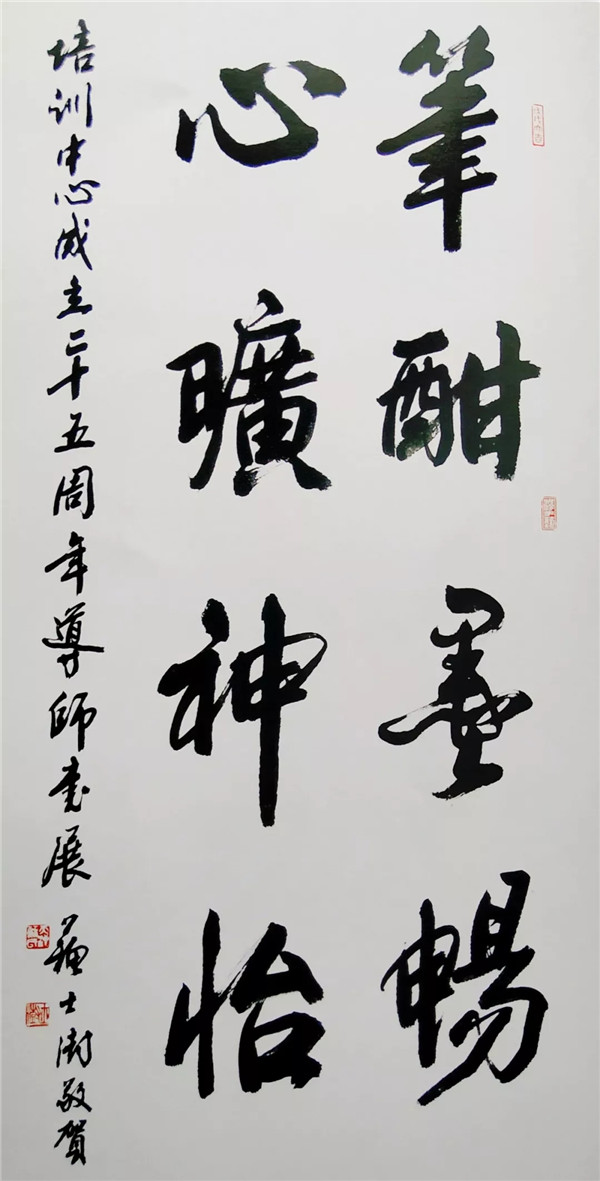 筆酣墨暢
心曠神怡
培训中心成立二十五周年導師书展 蘇士澍敬賀